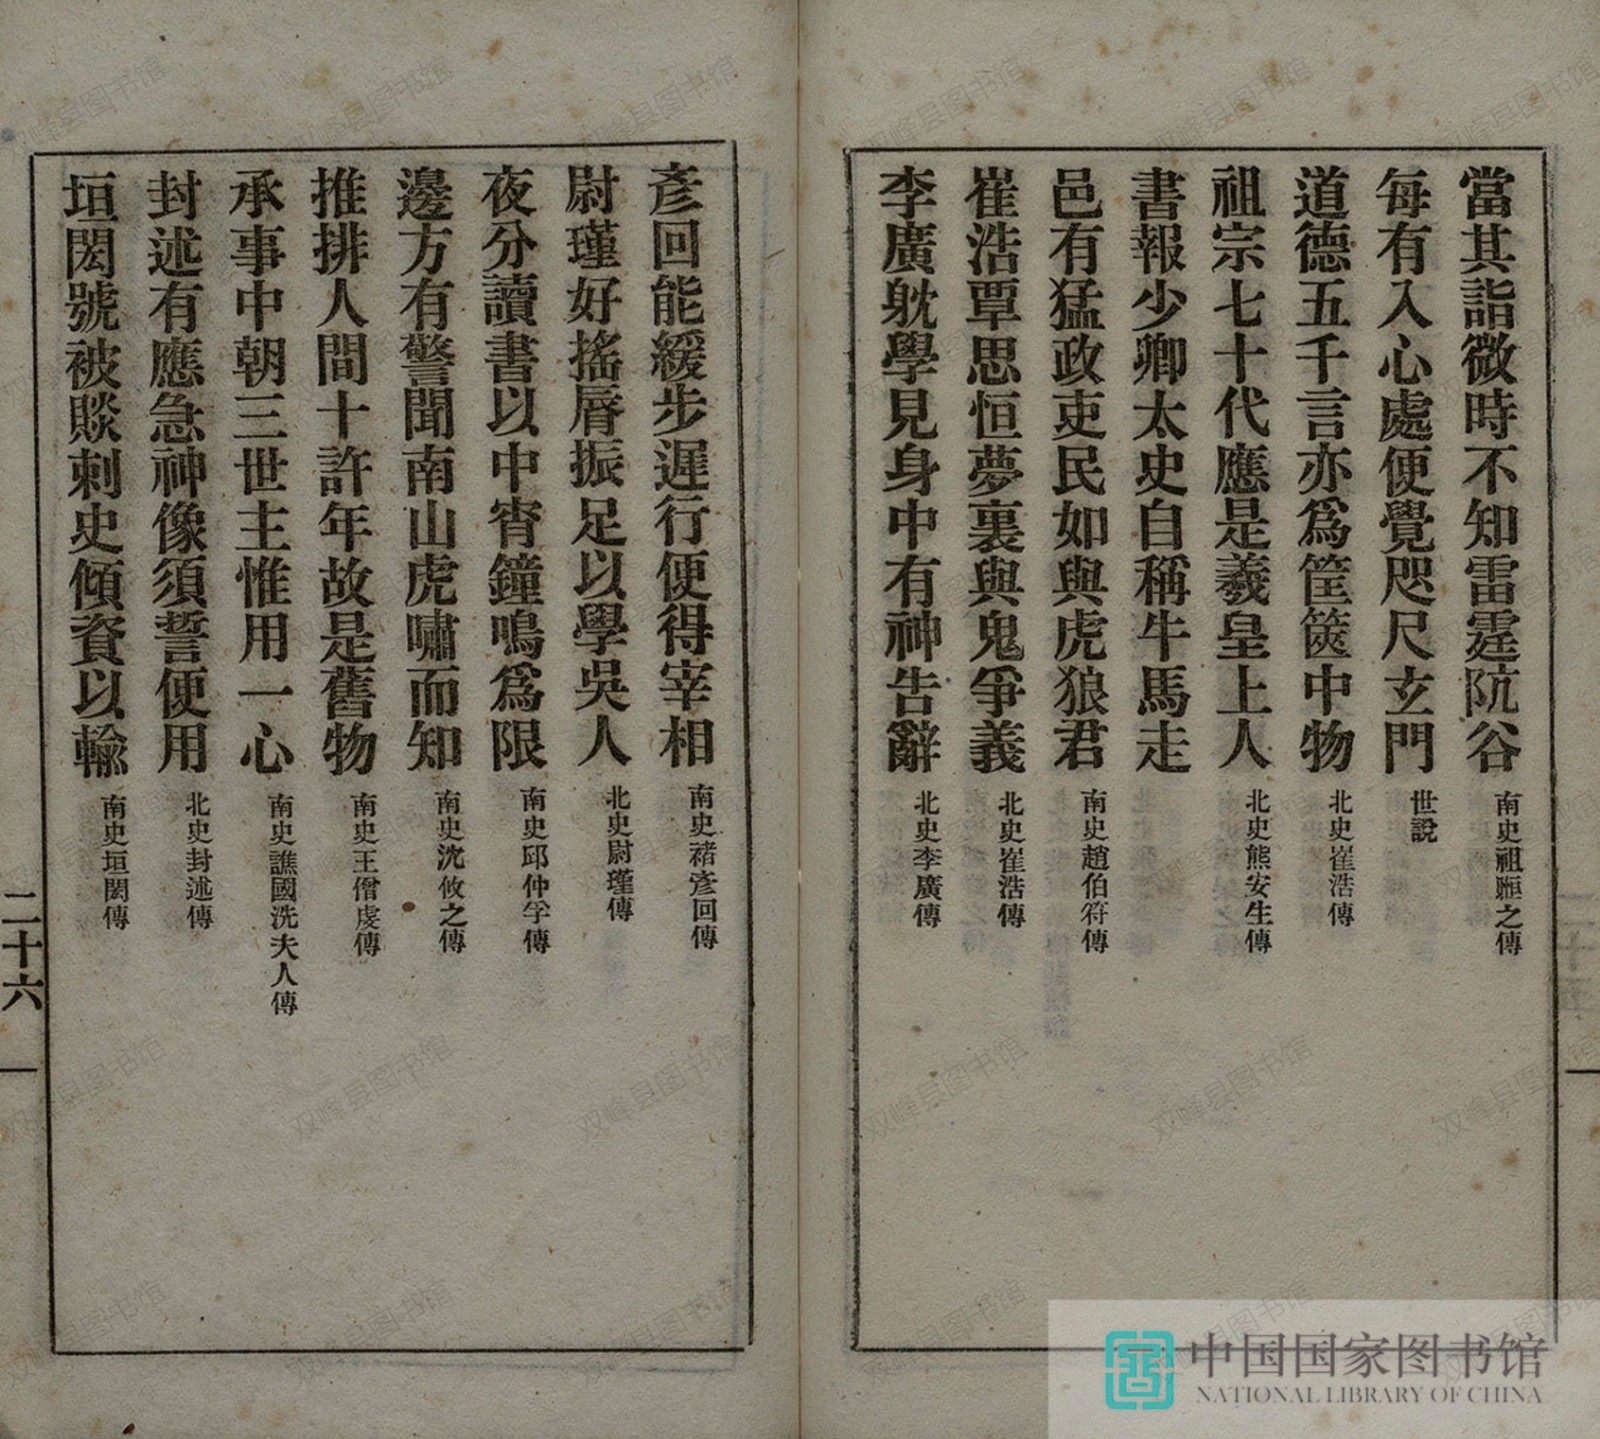 當其詣微時不知雷霆阬谷 南史祖暅之傳
每有入心處便覺咫尺玄門 世說
道德五千言亦爲筐篋中物 北史崔浩傳
祖宗七十代應是羲皇上人 北史熊安生傳
書報少卿太史自稱牛馬走
邑有猛政吏民如與虎狼君 南史趙伯符傳
崔浩覃思恒夢裏與鬼爭義 北史崔浩傳
李廣躭學見身中有神告辭 北史李廣傳
彥回能緩步遲行便得宰相 南史褚彥回傳
尉瑾好搖脣振足以學吳人 北史尉瑾傳
夜分讀書以中宵鐘鳴爲限 南史邱仲孚傳
邊方有警聞南山虎嘯而知 南史沈攸之傳
推排人間十許年故是舊物 南史王僧虔傳
承事中朝三世主惟用一心 南史譙國洗夫人傳
封述有應急神像須誓便用 北史封述傳
垣閎號被賧刺史傾資以輸 南史垣閎傳
二十六
中国国家图书馆
NATIONAL LIBRARY OF CHINA
双峰县图书馆